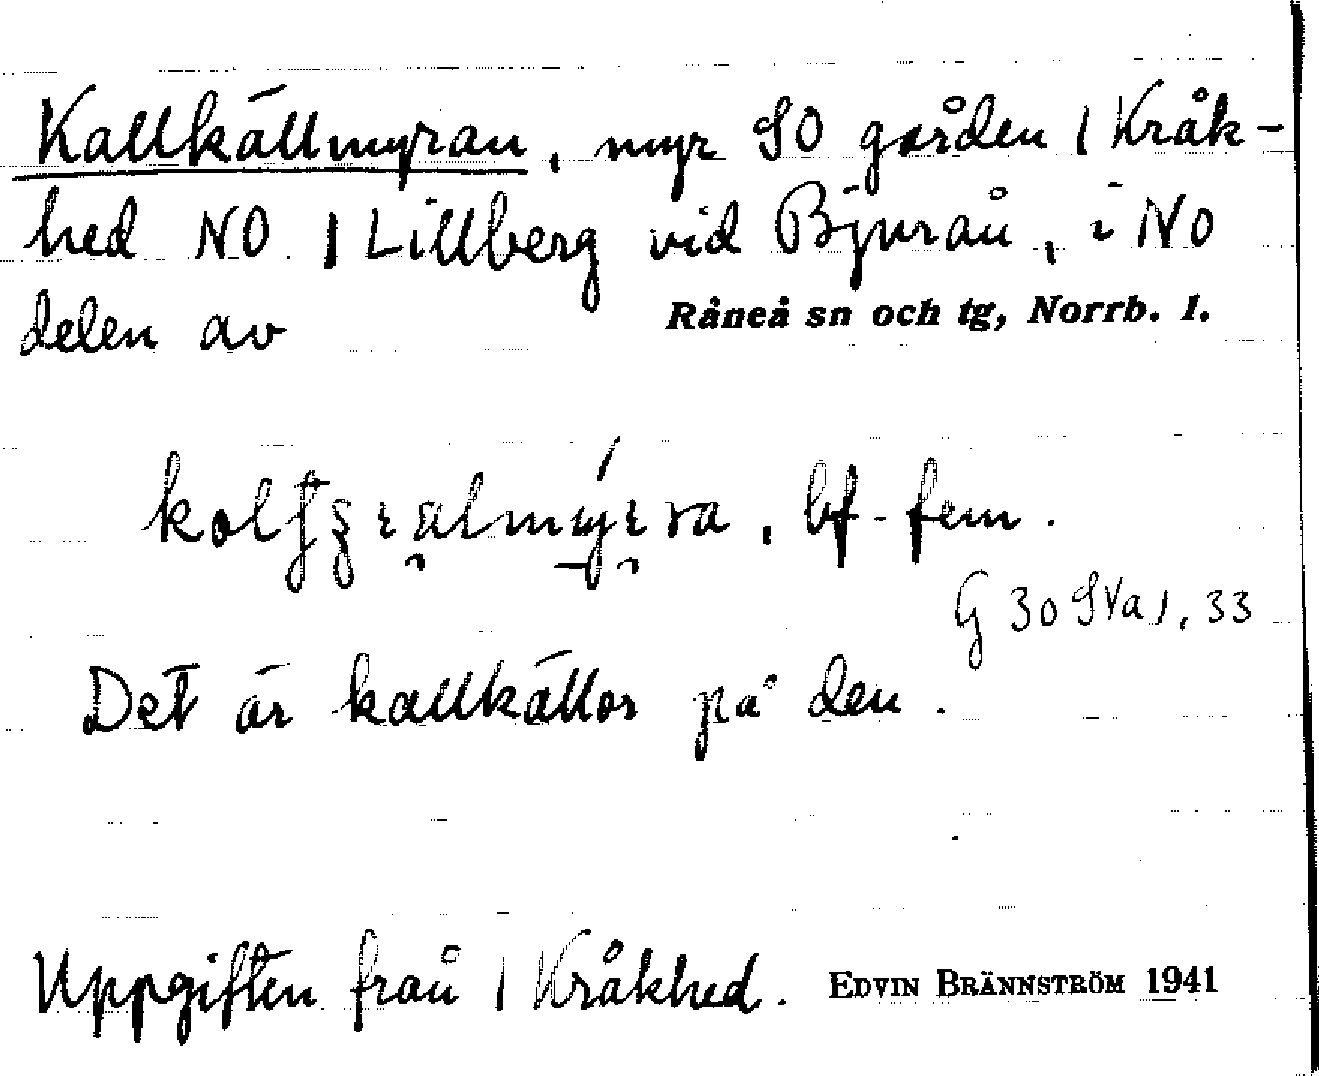 Kallkällmyran, myr SO gården 1 Kråk-
hed NO 1 Lillberg vid Bjurån, i NO
delen av Råneå sn och tg, Norrb. l.
bf. fem.
G 30 SVa 1, 33
Det är kallkällor på den.
Uppgiften från 1 Kråkhed. EDVIN BRÄNNSTRÖM 1941